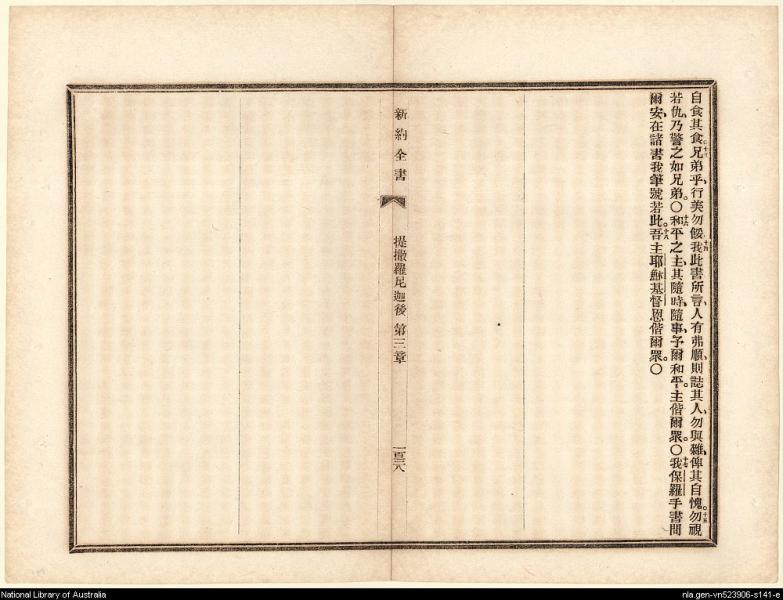 自食其食。十三兄弟乎、行美勿餒。十四我此書所言、人有弗順、則誌其人、勿與雜、俾其自愧。十五勿視
若仇、乃警之如兄弟。〇十六和平之主、其隨時隨事、予爾和平。主偕爾眾。〇十七我保羅手書問
爾安、在諸書我筆號若此。十八吾主耶穌基督恩偕爾眾。〇
新約全書
提撒羅尼迦後 第三章
一百三八
National Library of Australia
nla.gen-vn523906-s141-e